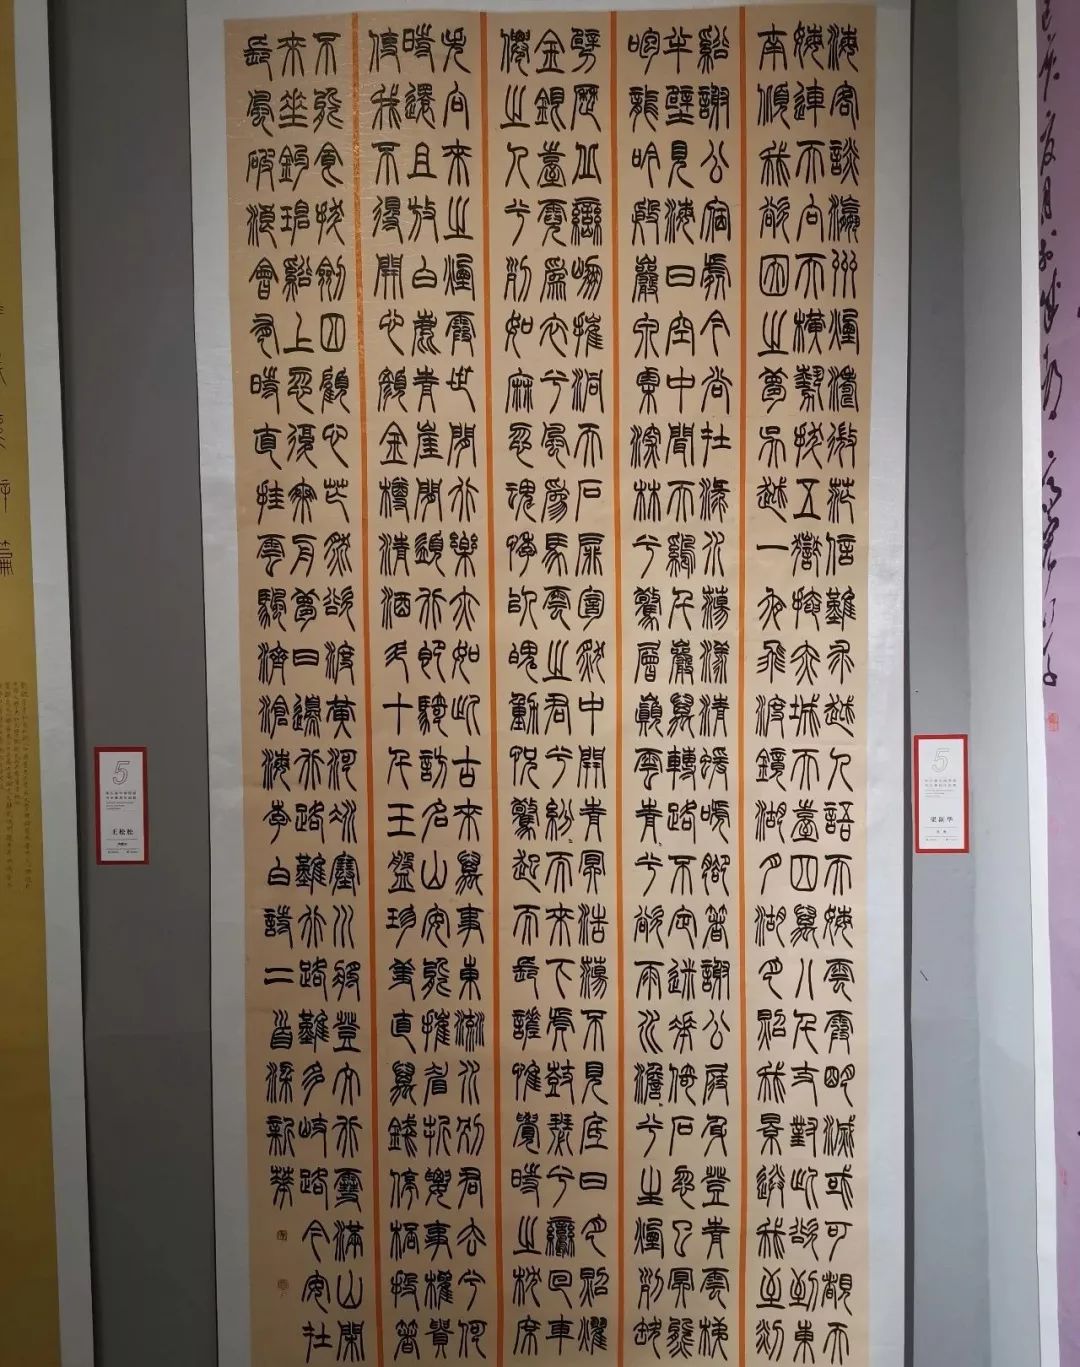 海客談瀛洲煙濤微茫信難求越人語天姥雲霞明滅或可覩天
姥連天向天橫勢拔五嶽掩赤城天臺四萬八千丈對此欲到東
南傾我欲因之夢吳越一夜飛渡鏡湖月湖月照我影送我至剡
谿謝公宿處今尚在淥水蕩漾清猿啼腳著謝公屐身登青雲梯
半壁見海日空中聞天雞千巖萬轉路不定迷花倚石忽已冥熊
咆龍吟殷巖泉栗深林兮驚層巔雲青々兮欲雨水澹々兮生煙列缺
劈歷丘巒崩摧洞天石扉訇然中開青冥浩蕩不見底日月照耀
金銀臺霓為衣兮風為馬雲之君兮紛而來下虎鼓瑟兮鸞回車
僊之人兮列如麻忽魂悸以魄動怳驚起而長嗟惟覺時之枕席
失向來之煙霞世間行樂亦如此古來萬事東流水別君去兮何
時還且放白鹿青崖間須行即騎訪名山安能摧眉折腰事權貴
使我不得開心顏金樽清酒斗十千玉盤珍羞直萬錢停杯投箸
不能食拔劍四顧心茫然欲渡黃河冰塞川將登太行雪滿山閑
來坐釣碧谿上忽復乘舟夢日邊行路難行路難多歧路今安在
長風破浪會有時直挂雲帆濟滄海李白詩二首梁新華
5
梁新华
5
王松松